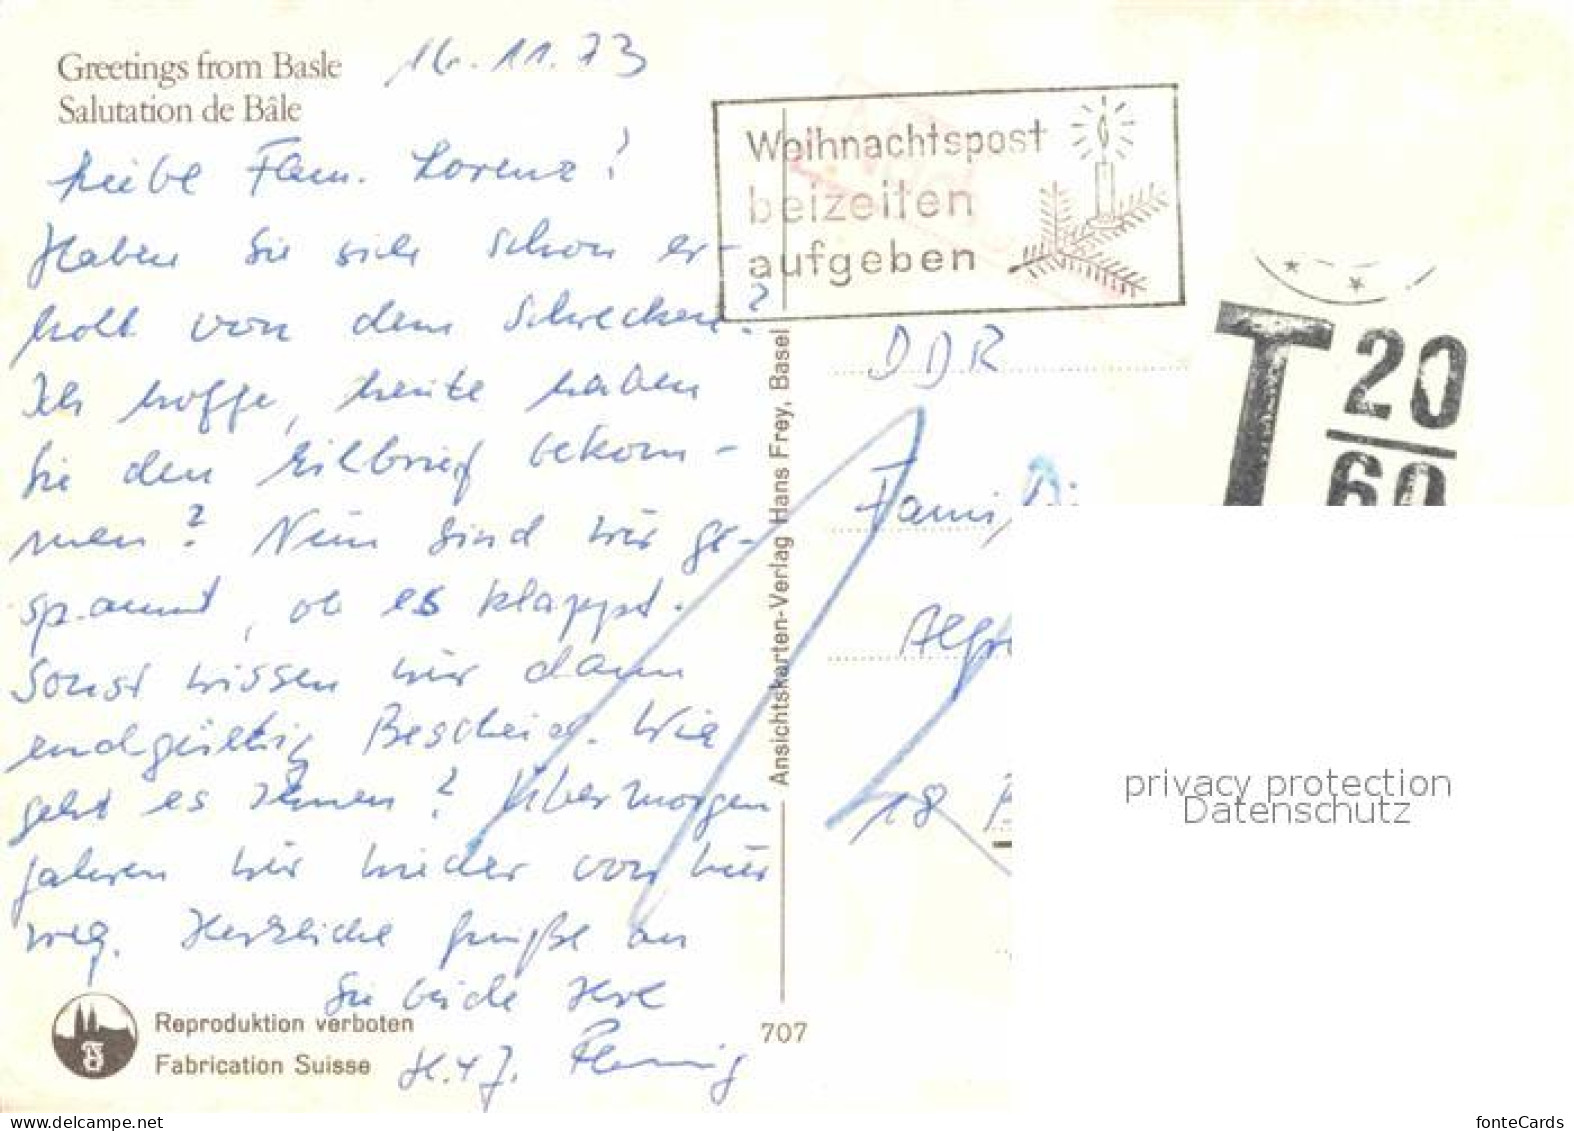 Greetings from Basle
Salutation de Bâle
16.11.73
Liebe Fam. Lorenz!
Haben Sie sich schon er-
holt von dem Schrecken?
Ich hoffe, heute haben
Sie den Eilbrief bekom-
men? Nun sind wir ge-
spannt, ob es klappt.
Sonst wissen wir dann
endgültig Bescheid. Wie
geht es Ihnen? Übermorgen
fahren wir wieder von hier
weg. Herzliche Grüße an
Sie beide Ihre
H. + J.
Reproduktion verboten
Fabrication Suisse
Ansichtskarten-Verlag Hans Frey, Basel
707
Weihnachtspost
beizeiten
aufgeben
T 20
60
DDR
Fami
Alfr
18
privacy protection
Datenschutz
www.ansichtskarten-center.de
fonteCards